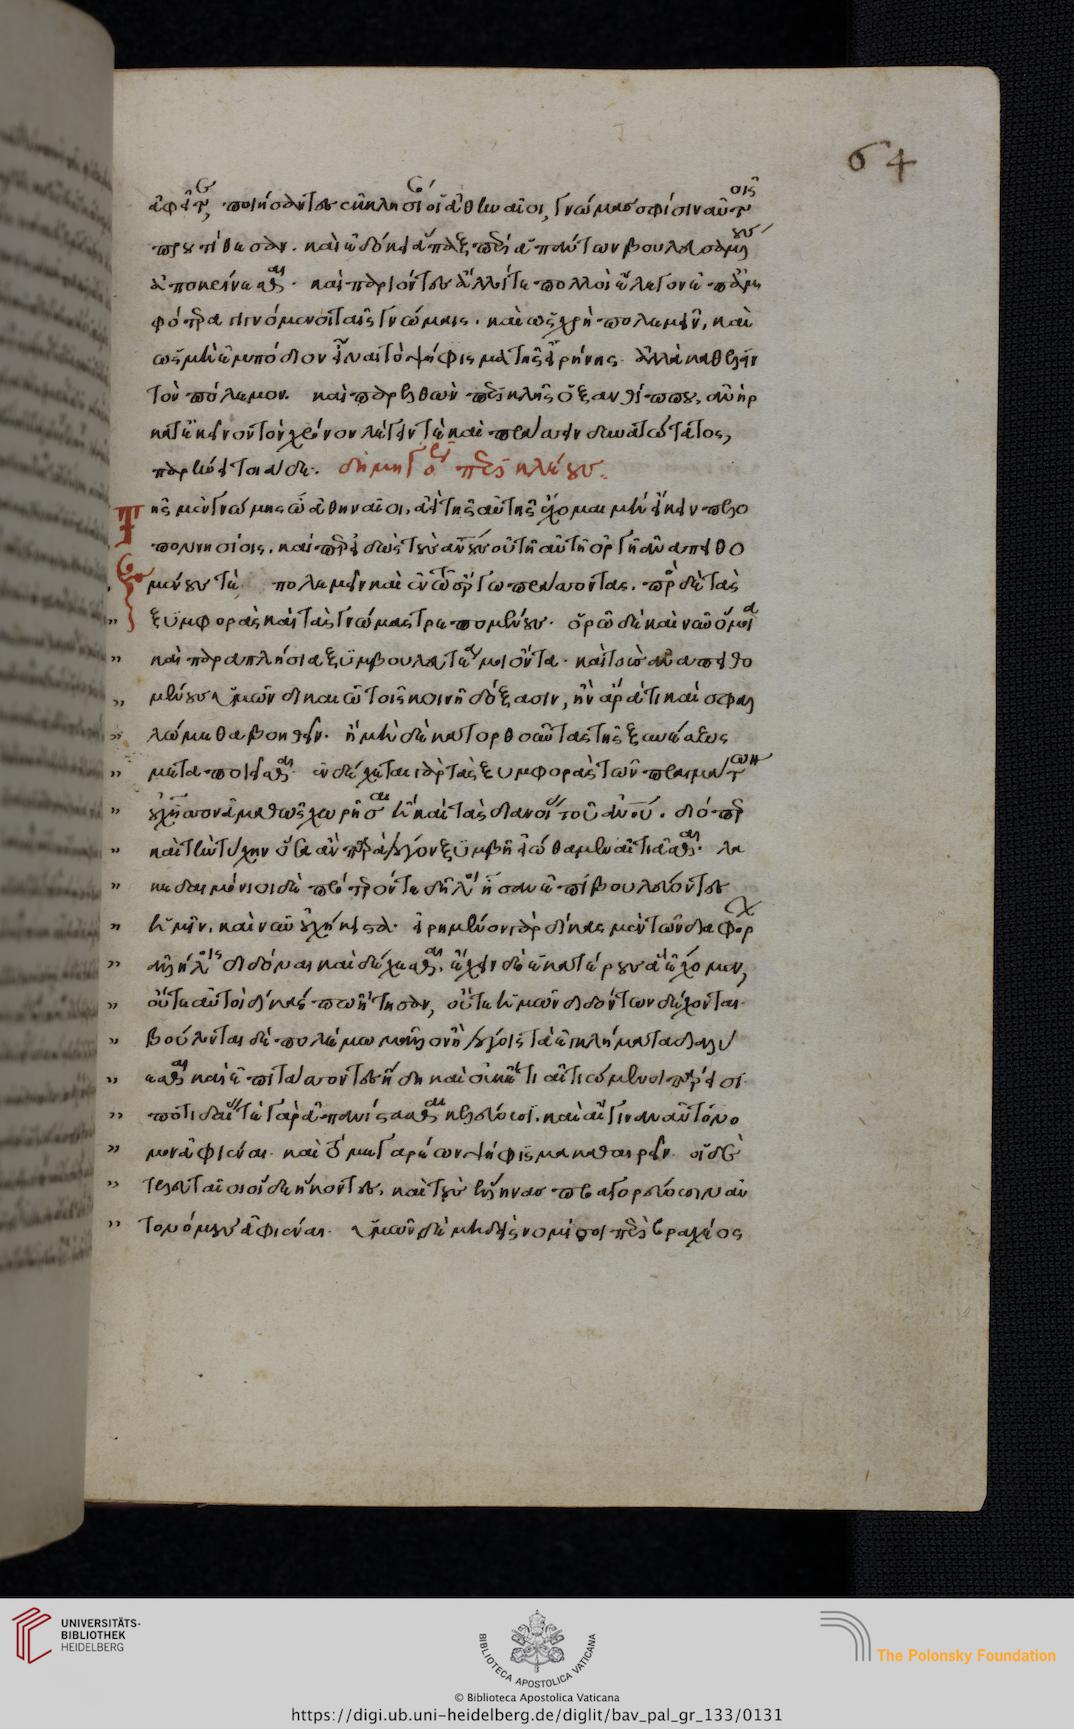 64
ἀφῆτε, ποιήσαντες ἐκκλησίαν οἱ ἀθηναῖοι, γνώμας σφίσιν αὐτοῖς
προυτίθεσαν. καὶ ἐδόκει ἅπαξ περὶ ἁπάντων βουλευσαμένους
ἀποκρίνασθαι. καὶ παριόντες ἄλλοι τε πολλοὶ ἔλεγον ἐπ' ἀμ
φότερα γιγνόμενοι ταῖς γνώμαις. καὶ ὡς χρὴ πολεμεῖν, καὶ
ὡς μὴ ἐμπόδιον εἶναι τὸ ψήφισμα τῆς εἰρήνης ἀλλὰ καθελεῖν
τὸν πόλεμον. καὶ παρελθὼν περικλῆς ὁ ξανθίππου, ἀνὴρ
κατ' ἐκεῖνον τὸν χρόνον λέγειν τε καὶ πράσσειν δυνατώτατος,
παρῄνει τοιάδε. δημηγορία περικλέους
Τῆς μὲν γνώμης ὦ ἀθηναῖοι, ἀεὶ τῆς αὐτῆς ἔχομαι μὴ εἴκειν πελο
πονησίοις. καὶ περ εἰδὼς τοὺς ἀνθρώπους οὐ τῇ αὐτῇ ὀργῇ ἀναπειθο
μένους τε πολεμεῖν καὶ ἐν τῷ ἔργῳ πράσσοντας. πρὸς δὲ τὰς
ξυμφορὰς καὶ τὰς γνώμας τρεπομένους. ὁρῶ δὲ καὶ νῦν ὅμοια
καὶ παραπλήσια ξυμβουλευτέα μοι ὄντα. καὶ τοὺς ἀναπειθο
μένους ὑμῶν δικαιῶ τοῖς κοινῇ δόξασιν, ἢν ἄρα τι καὶ σφαλ
λώμεθα βοηθεῖν. ἢ μὴ δὲ κατορθοῦντας τῆς ξυνέσεως
μεταποιεῖσθαι. ἐνδέχεται γὰρ τὰς ξυμφορὰς τῶν πραγμάτων
οὐχ ἧσσον ἀμαθῶς χωρῆσαι ἢ καὶ τὰς διανοίας τοῦ ἀνθρώπου. διόπερ
καὶ τὴν τύχην ὅσα ἂν παρὰ λόγον ξυμβῇ εἰώθαμεν αἰτιᾶσθαι. λα
κεδαιμόνιοι δὲ πρότερόν τε δῆλοι ἦσαν ἐπιβουλεύοντες
ἡμῖν, καὶ νῦν οὐχ ἥκιστα. εἰρημένον γὰρ δίκας μὲν τῶν διαφόρων
ἀλλήλοις διδόναι καὶ δέχεσθαι, ἔχειν δὲ ἑκατέρους ἃ ἔχομεν,
οὔτε αὐτοὶ δίκας πω ᾔτησαν, οὔτε ἡμῶν διδόντων δέχονται.
βούλονται δὲ πολέμῳ μᾶλλον ἢ λόγοις τὰ ἐγκλήματα διαλύ
εσθαι καὶ ἐπιτάσσοντες ἤδη καὶ οὐκέτι αἰτιώμενοι πάρεισι.
ποτιδαίας τε γὰρ ἀπανίστασθαι κελεύουσι. καὶ αἴγιναν αὐτόνο
μον ἀφιέναι. καὶ τὸ μεγαρέων ψήφισμα καθαιρεῖν. οἱ δὲ
τελευταῖοι οἵδε ἥκοντες, καὶ τοὺς ἕλληνας προαγορεύουσιν αὐ
τονόμους ἀφιέναι. ὑμῶν δὲ μηδεὶς νομίσῃ περὶ βραχέος
UNIVERSITÄTS-
BIBLIOTHEK
HEIDELBERG
BIBLIOTECA APOSTOLICA VATICANA
The Polonsky Foundation
© Biblioteca Apostolica Vaticana
https://digi.ub.uni-heidelberg.de/diglit/bav_pal_gr_133/0131